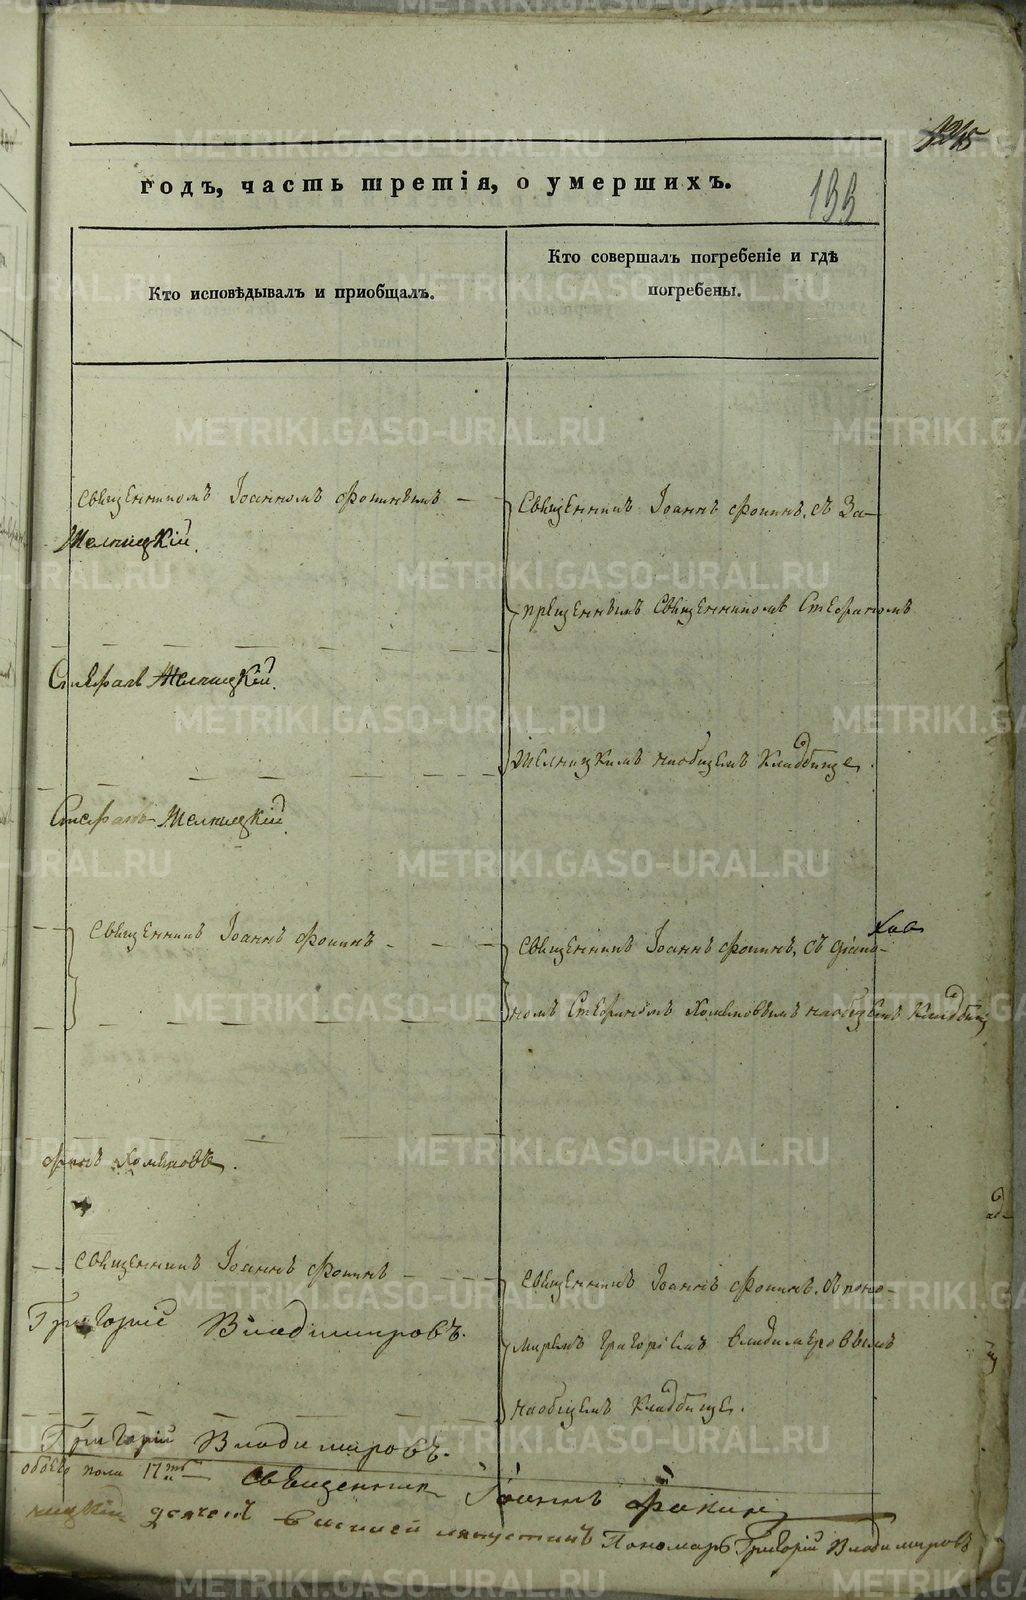 годъ, часть третія, о умершихъ.
133
Кто исповѣдывалъ и приобщалъ.
Кто совершалъ погребеніе и гдѣ
погребены.
Священникомъ Іоанномъ Фокинымъ
Желницкій.
Священникъ Іоаннъ Фокинъ, съ За-
прещеннымъ Священникомъ Стефаномъ
Стефанъ Желницкій.
Желницкимъ на общемъ Кладбище.
Стефанъ Желницкій
Священникъ Іоаннъ Фокинъ
Священникъ Іоаннъ Фокинъ, съ Діако-
номъ Стефаномъ Хомяковымъ на общемъ Кладбищ
фанъ Хомяковъ.
Священникъ Іоаннъ Фокинъ
Священникъ Іоаннъ Фокинъ, съ поно-
Григорій Владимировъ.
маремъ Григоріемъ Владимировымъ
на общемъ Кладбище.
Григорій Владимировъ.
обоего пола 17ть
Священникъ Іоаннъ Фокинъ
ницкій дьячекъ Пономарь Григорій Владимировъ
METRIKI.GASO-URAL.RU